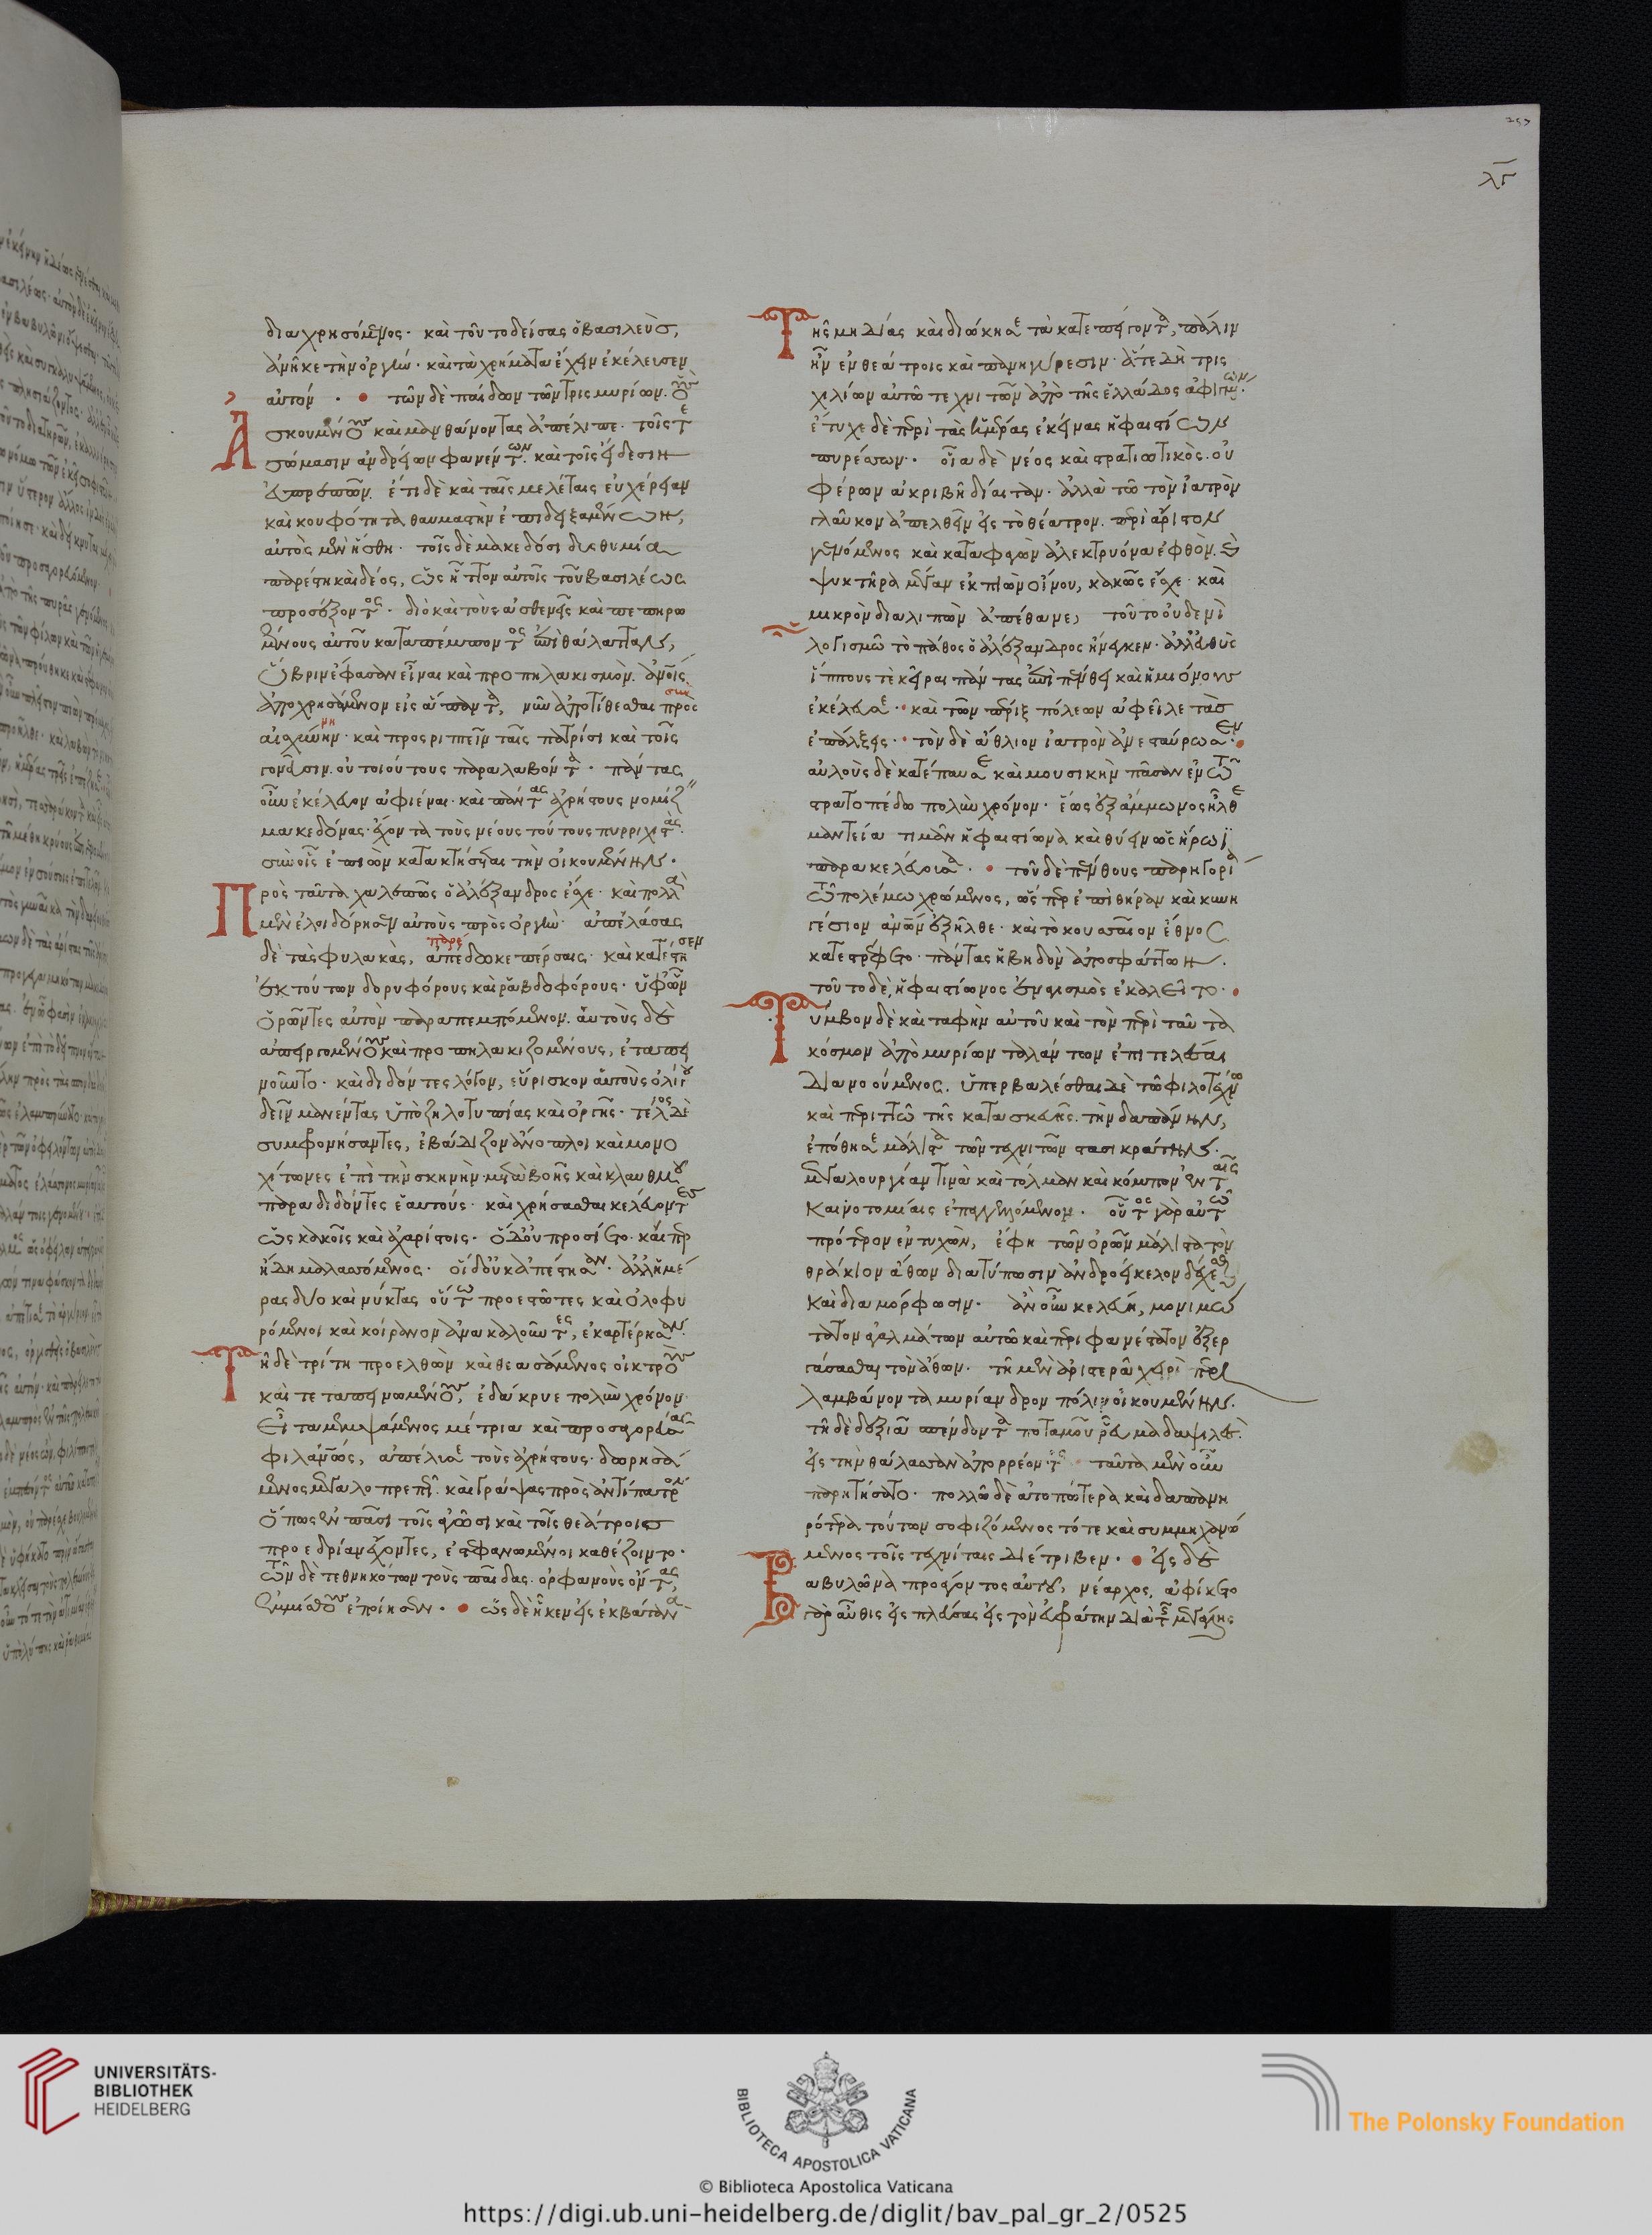 διαχρησόμενος· καὶ τοῦτο δείσας ὁ βασιλεὺς,
ἀνῆκε τὴν ὀργὴν· καὶ τὰ χρήματα ἔχειν ἐκέλευσεν
αὐτόν · τῶν δὲ παίδων τῶν τρισμυρίων. οὓς
Ἀσκουμένους καὶ μανθάνοντας ἀπέλιπε· τοῖς τε
σώμασιν ἀνδρείων φανέντων· καὶ τοῖς εἴδεσιν
εὐπρεπῶν. ἔτι δὲ καὶ ταῖς μελέταις εὐχέρειαν
καὶ κουφότητα θαυμαστὴν ἐπιδειξαμένων,
αὐτὸς μὲν ἥσθη· τοῖς δὲ μακεδόσι δυσθυμία
παρέστη καὶ δέος, ὡς ἧττον αὐτοῖς τοῦ βασιλέως
προσέξοντος· διὸ καὶ τοὺς ἀσθενεῖς καὶ πεπηρω
μένους αὐτοῦ καταπέμποντος ἐπὶ θάλατταν,
ὕβριν ἔφασαν εἶναι καὶ προπηλακισμὸν. ἀνθρώποις
ἀποχρησάμενον εἰς ἅπαντα, νῦν ἀποτίθεσθαι πρὸς σὺν
αἰσχύνην μη· καὶ προσριπτεῖν ταῖς πατρίσι καὶ τοῖς
γονεῦσιν. οὐ τοιούτους παραλαβόντα· πάντας
οὖν ἐκέλευον ἀφιέναι· καὶ πάντας ἀχρήστους νομίζειν
μακεδόνας· ἔχοντα τοὺς νέους τούτους πυρριχιστάς·
σὺν οἷς ἐπιὼν κατακτήσεται τὴν οἰκουμένην.
Πρὸς ταῦτα χαλεπῶς ὁ ἀλέξανδρος ἔσχε· καὶ πολλὰ
μὲν ἐλοιδόρησεν αὐτοὺς πρὸς ὀργὴν· ἀπελάσας
δὲ τὰς φυλακὰς, ἀπέδωκε παρέ πέρσαις· καὶ κατέστησεν
ἐκ τούτων δορυφόρους καὶ ῥαβδοφόρους· ὑφ' ὧν
ὁρῶντες αὐτὸν παραπεμπόμενον. αὑτοὺς δὲ
ἀπειργομένους καὶ προπηλακιζομένους, ἐταπει
νοῦντο· καὶ διδόντες λόγον, εὕρισκον αὑτοὺς ὀλίγου
δεῖν μανέντας ὑπὸ ζηλοτυπίας καὶ ὀργῆς· τέλος δὲ
συμφρονήσαντες, ἐβάδιζον ἄνοπλοι καὶ μονο
χίτωνες ἐπὶ τὴν σκηνὴν μετὰ βοῆς καὶ κλαυθμοῦ
παραδιδόντες ἑαυτούς· καὶ χρήσασθαι κελεύοντες
ὡς κακοῖς καὶ ἀχαρίστοις· ὁ δ' οὐ προσίετο· καίπερ
ἤδη μαλασσόμενος· οἱ δ' οὐκ ἀπέστησαν· ἀλλ' ἡμέ
ρας δύο καὶ νύκτας οὕτω προεστῶτες καὶ ὀλοφυ
ρόμενοι καὶ κοίρανον ἀνακαλοῦντες, ἐκαρτέρησαν.
Τῇ δὲ τρίτῃ προελθὼν καὶ θεασάμενος οἰκτροὺς
καὶ τεταπεινωμένους, ἐδάκρυε πολὺν χρόνον·
εἶτα μεμψάμενος μέτρια καὶ προσαγορεύσας
φιλανθρώπως, ἀπέλυσε τοὺς ἀχρήστους· δωρησά
μενος μεγαλοπρεπῶς· καὶ γράψας πρὸς ἀντίπατρον
ὅπως ἐν πᾶσι τοῖς ἀγῶσι καὶ τοῖς θεάτροις
προεδρίαν ἔχοντες, ἐστεφανωμένοι καθέζοιντο·
τῶν δὲ τεθνηκότων τοὺς παῖδας· ὀρφανοὺς ὄντας,
ἐμμίσθους ἐποίησεν· ὡς δὲ ἧκεν εἰς ἐκβάτανα
Τῆς μηδίας καὶ διώκησε τὰ κατεπείγοντα, πάλιν
ἦν ἐν θεάτροις καὶ πανηγύρεσιν· ἅτε δὴ τρις
χιλίων αὐτῷ τεχνιτῶν ἀπὸ τῆς ἑλλάδος ἀφιγμένων·
ἔτυχε δὲ περὶ τὰς ἡμέρας ἐκείνας ἡφαιστίων
πυρέσσων· οἷα δὲ νέος καὶ στρατιωτικὸς· οὐ
φέρων ἀκριβῆ δίαιταν· ἀλλὰ τῷ τὸν ἰατρὸν
γλαῦκον ἀπελθεῖν εἰς τὸ θέατρον. περὶ ἄριστον
γενόμενος καὶ καταφαγὼν ἀλεκτρυόνα ἐφθὸν. καὶ
ψυκτῆρα μέγαν ἐκπιὼν οἴνου, κακῶς ἔσχε· καὶ
μικρὸν διαλιπὼν ἀπέθανε, τοῦτο οὐδενὶ
λογισμῷ τὸ πάθος ὁ ἀλέξανδρος ἤνεγκεν· ἀλλ' εὐθὺς
ἵππους τε κεῖραι πάντας ἐπὶ πένθει καὶ ἡμιόνους
ἐκέλευσε· καὶ τῶν πέριξ πόλεων ἀφεῖλε τὰς
ἐπάλξεις· τὸν δὲ ἄθλιον ἰατρὸν ἀνεσταύρωσεν·
αὐλοὺς δὲ κατέπαυσε καὶ μουσικὴν πᾶσαν ἐν τῷ
στρατοπέδῳ πολὺν χρόνον· ἕως ἐξ ἄμμωνος ἦλθε
μαντεία τιμᾶν ἡφαιστίωνα καὶ θύειν ὡς ἥρωϊ
παρακελεύουσα· τοῦ δὲ πένθους παρηγορία
τῷ πολέμῳ χρώμενος, ὥσπερ ἐπὶ θήραν καὶ κυνη
γέσιον ἀνθρώπων ἐξῆλθε· καὶ τὸ κουσσαίων ἔθνος
κατεστρέφετο· πάντας ἡβηδὸν ἀποσφάττων.
τοῦτο δὲ, ἡφαιστίωνος ἐναγισμὸς ἐκαλεῖτο·
Τύμβον δὲ καὶ ταφὴν αὐτοῦ καὶ τὸν περὶ ταῦτα
κόσμον ἀπὸ μυρίων ταλάντων ἐπιτελέσαι
διανοούμενος. ὑπερβαλέσθαι δὲ τῷ φιλοτέχνῳ
καὶ περιττῷ τῆς κατασκευῆς. τὴν δαπάνην,
ἐπόθησε μάλιστα τῶν τεχνιτῶν στασικράτην·
μεγαλουργίαν τινὰ καὶ τόλμαν καὶ κόμπον ἐν ταῖς
καινοτομίαις ἐπαγγελλόμενον· οὗτος γὰρ αὐτῷ
πρότερον ἐντυχὼν, ἔφη τῶν ὀρῶν μάλιστα τὸν
θράκιον ἄθων διατύπωσιν ἀνδροείκελον δέχεσθαι
καὶ διαμόρφωσιν· ἂν οὖν κελεύῃ, μονιμώ
τατον ἀγαλμάτων αὐτῷ καὶ περιφανέστατον ἐξερ
γάσασθαι τὸν ἄθων. τῇ μὲν ἀριστερᾷ χειρὶ περι
λαμβάνοντα μυρίανδρον πόλιν οἰκουμένην.
τῇ δὲ δεξιᾷ σπένδοντα ποταμοῦ ῥεῦμα δαψιλὲς.
εἰς τὴν θάλασσαν ἀπορρέοντος ταῦτα μὲν οὖν
παρητήσατο· πολλῷ δὲ ἀτοπώτερα καὶ δαπανη
ρότερα τούτων σοφιζόμενος τότε καὶ συμμηχανώ
μενος τοῖς τεχνίταις διέτριβεν· εἰς δὲ
Βαβυλῶνα προσιόντος αὐτοῦ, νέαρχος, ἀφίκετο
γὰρ αὖθις εἰσπλεύσας εἰς τὸν εὐφράτην διὰ τῆς μεγάλης
UNIVERSITÄTS-
BIBLIOTHEK
HEIDELBERG
BIBLIOTECA APOSTOLICA VATICANA
© Biblioteca Apostolica Vaticana
The Polonsky Foundation
https://digi.ub.uni-heidelberg.de/diglit/bav_pal_gr_2/0525